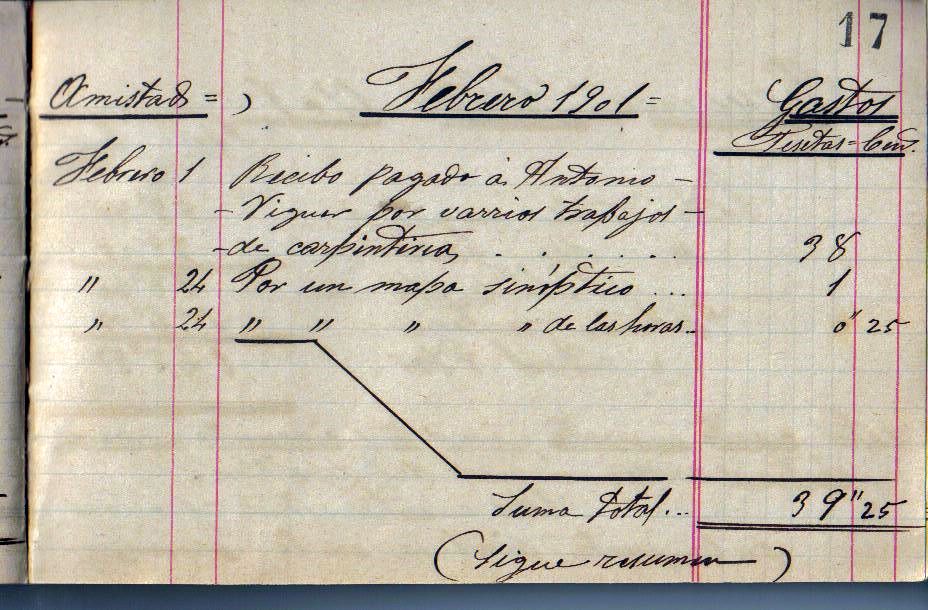 17
Amistad = ) Febrero 1901 = Gastos
Pesetas = Cent.
Febrero 1 Recibo pagado á Antonio -
- Viguer por varrios trabajos -
- de carpinteria . . . . . . 38
" 24 Por un mapa sinóptico ... 1
" 24 " " " " de las horas .. 0" 25
Suma total ... 39" 25
(Sigue resumen)